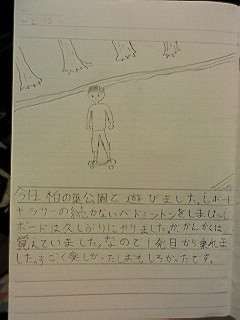 今日、柏の葉公園で遊びました。Sボード
やラリーの続かないバドミントンをしました。S
ボードは久しぶりにやりました。が、かんかくは
覚えていました。なので1発目から乗れま
した。すごく楽しかったしおもしろかったです。